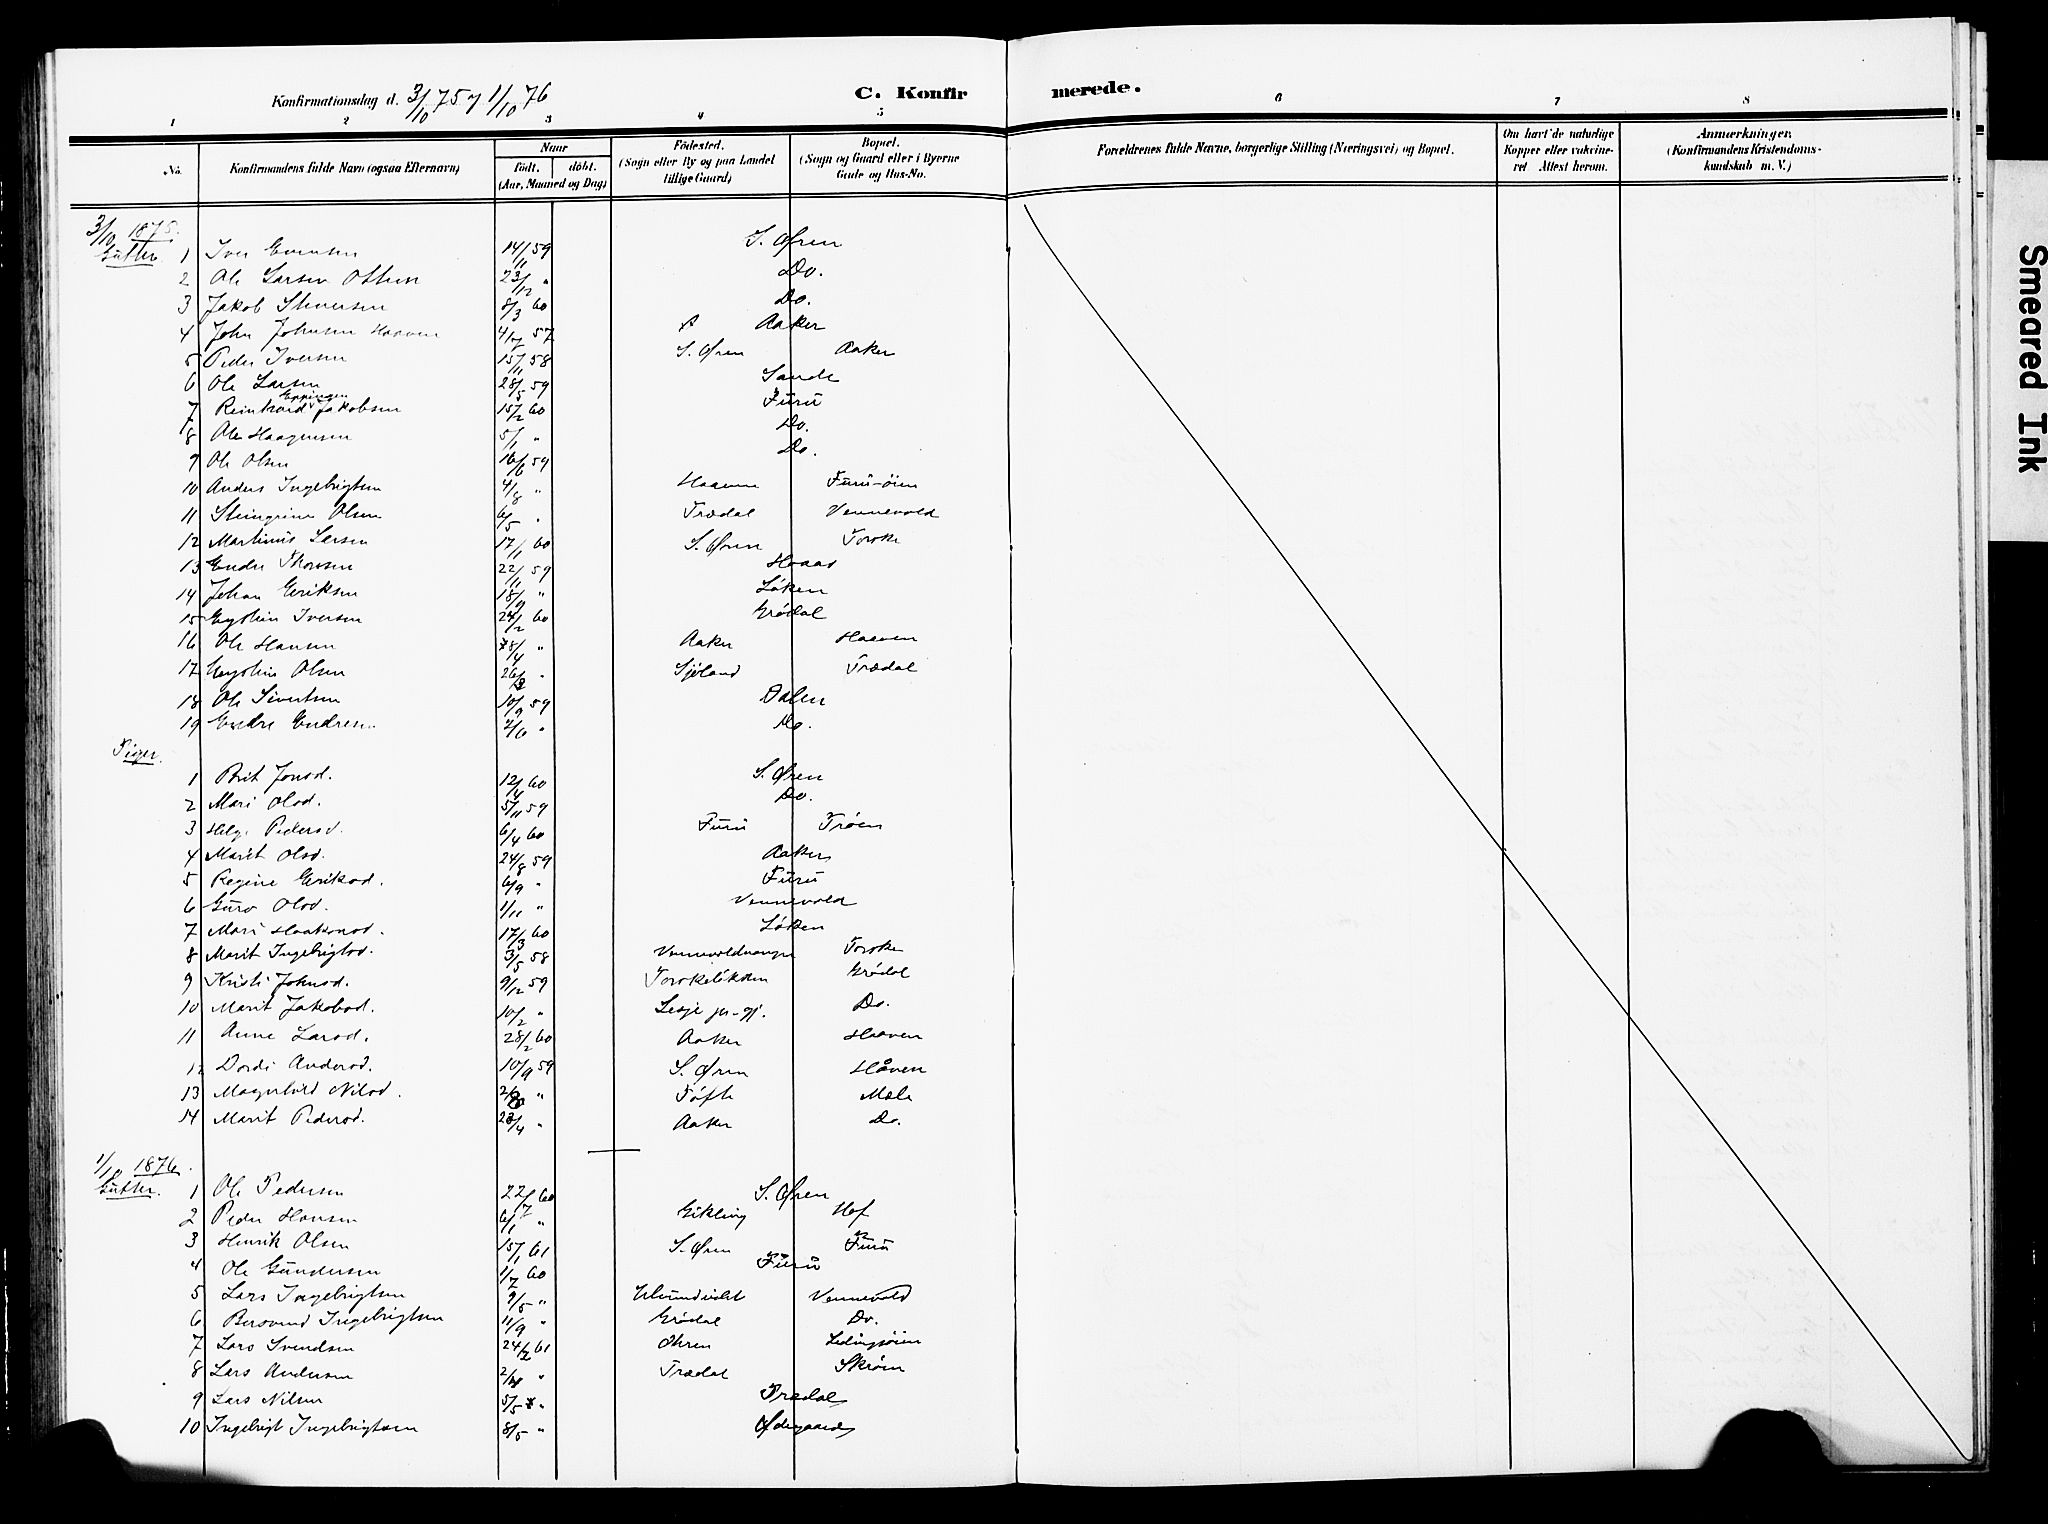 Konfirmationsdag d. 3/10 75 og 1/10 76
C. Konfirmerede.
1 2 3 4 5 6 7 8
No. Konfirmandens fulde Navn (ogsaa Efternavn) Naar født. døbt. (Aar, Maaned og Dag) Fødested. (Sogn eller By og paa Landet tillige Gaard) Bopæl. (Sogn og Gaard eller i Byerne Gade og Hus-No. Forældrenes fulde Navne, borgerlige Stilling (Næringsvei) og Bopæl. Om havt de naturlige Kopper eller vakcineret. Attest herom. Anmærkninger. (Konfirmandens Kristendomskundskab m. V.)
3/10 1875.
Gutter.
1 Iver Evensen 14/11 59 S. Øren
2 Ole Larsen Ottem 23/12 " Do.
3 Jakob Steversen 8/3 60 Do.
4 John Johnsen Haaven 4/7 57 Aaker
5 Peder Iversen 15/11 58 S. Øren Aaker
6 Ole Larsen 28/5 59 Sande
7 Reinhard Jakobsen 15/2 60 Furu
8 Ole Haagensen 5/1 " Do.
9 Ole Olsen 16/6 59 Do.
10 Anders Ingebrigtsen 4/8 " Haaven Furu-øien
11 Steingrim Olsen 6/5 " Trædal Vennevold
12 Martinus Larsen 17/1 60 S. Øren Torske
13 Endre Thorsen 22/11 59 Hoaas
14 Johan Eriksen 18/9 " Løken
15 Eystein Iversen 24/2 60 Grødal
16 Ole Hansen 28/4 " Aaker Haaven
17 Eystein Olsen 26/3 " Sjøland Trædal
18 Ole Sivertsen 10/9 59 Dalen
19 Endre Endresen 2/6 " Do.
Piger.
1 Brit Jonsd. 12/4 60 S. Øren
2 Mari Olsd. 5/11 59 Do.
3 Helge Pedersd. 6/4 60 Furu Trøen
4 Marit Olsd. 24/8 59 Aaker
5 Regine Eriksd. 6/9 " Furu
6 Guro Olsd. 1/11 " Vennevold
7 Mari Haakonsd. 17/3 60 Løken
8 Marit Ingebrigtsd. 3/5 58 Vennevoldvangen Torske
9 Kristi Johnsd. 9/12 59 Torskeløkken Grødal
10 Marit Jakobsd. 10/2 " Lesje pr-gj. Do.
11 Anne Larsd. 28/2 60 Aaker Haaven
12 Dordi Andersd. 10/9 59 S. Øren Håven
13 Magnhild Nilsd. 2/8 " Tøfte Mæle
14 Marit Pedersd. 23/4 " Aaker Do.
1/10 1876.
Gutter.
1 Ole Pedersen 22/7 60 S. Øren
2 Peder Hansen 6/1 " Gikling Hof
3 Henrik Olsen 15/1 61 S. Øren Furu
4 Ole Gundersen 1/7 60 Furu
5 Lars Ingebrigtsen 9/5 " Vennevold
6 Bersvend Ingebrigtsen 11/9 " Grødal Do.
7 Lars Svendsen 24/2 61 Øhren
8 Lars Andersen " Trædal Skrøen
9 Lars Nilsen 5/5 " Trædal
10 Ingebrigt Ingebrigtsen 8/5 " Ødegaard
Smeared Ink